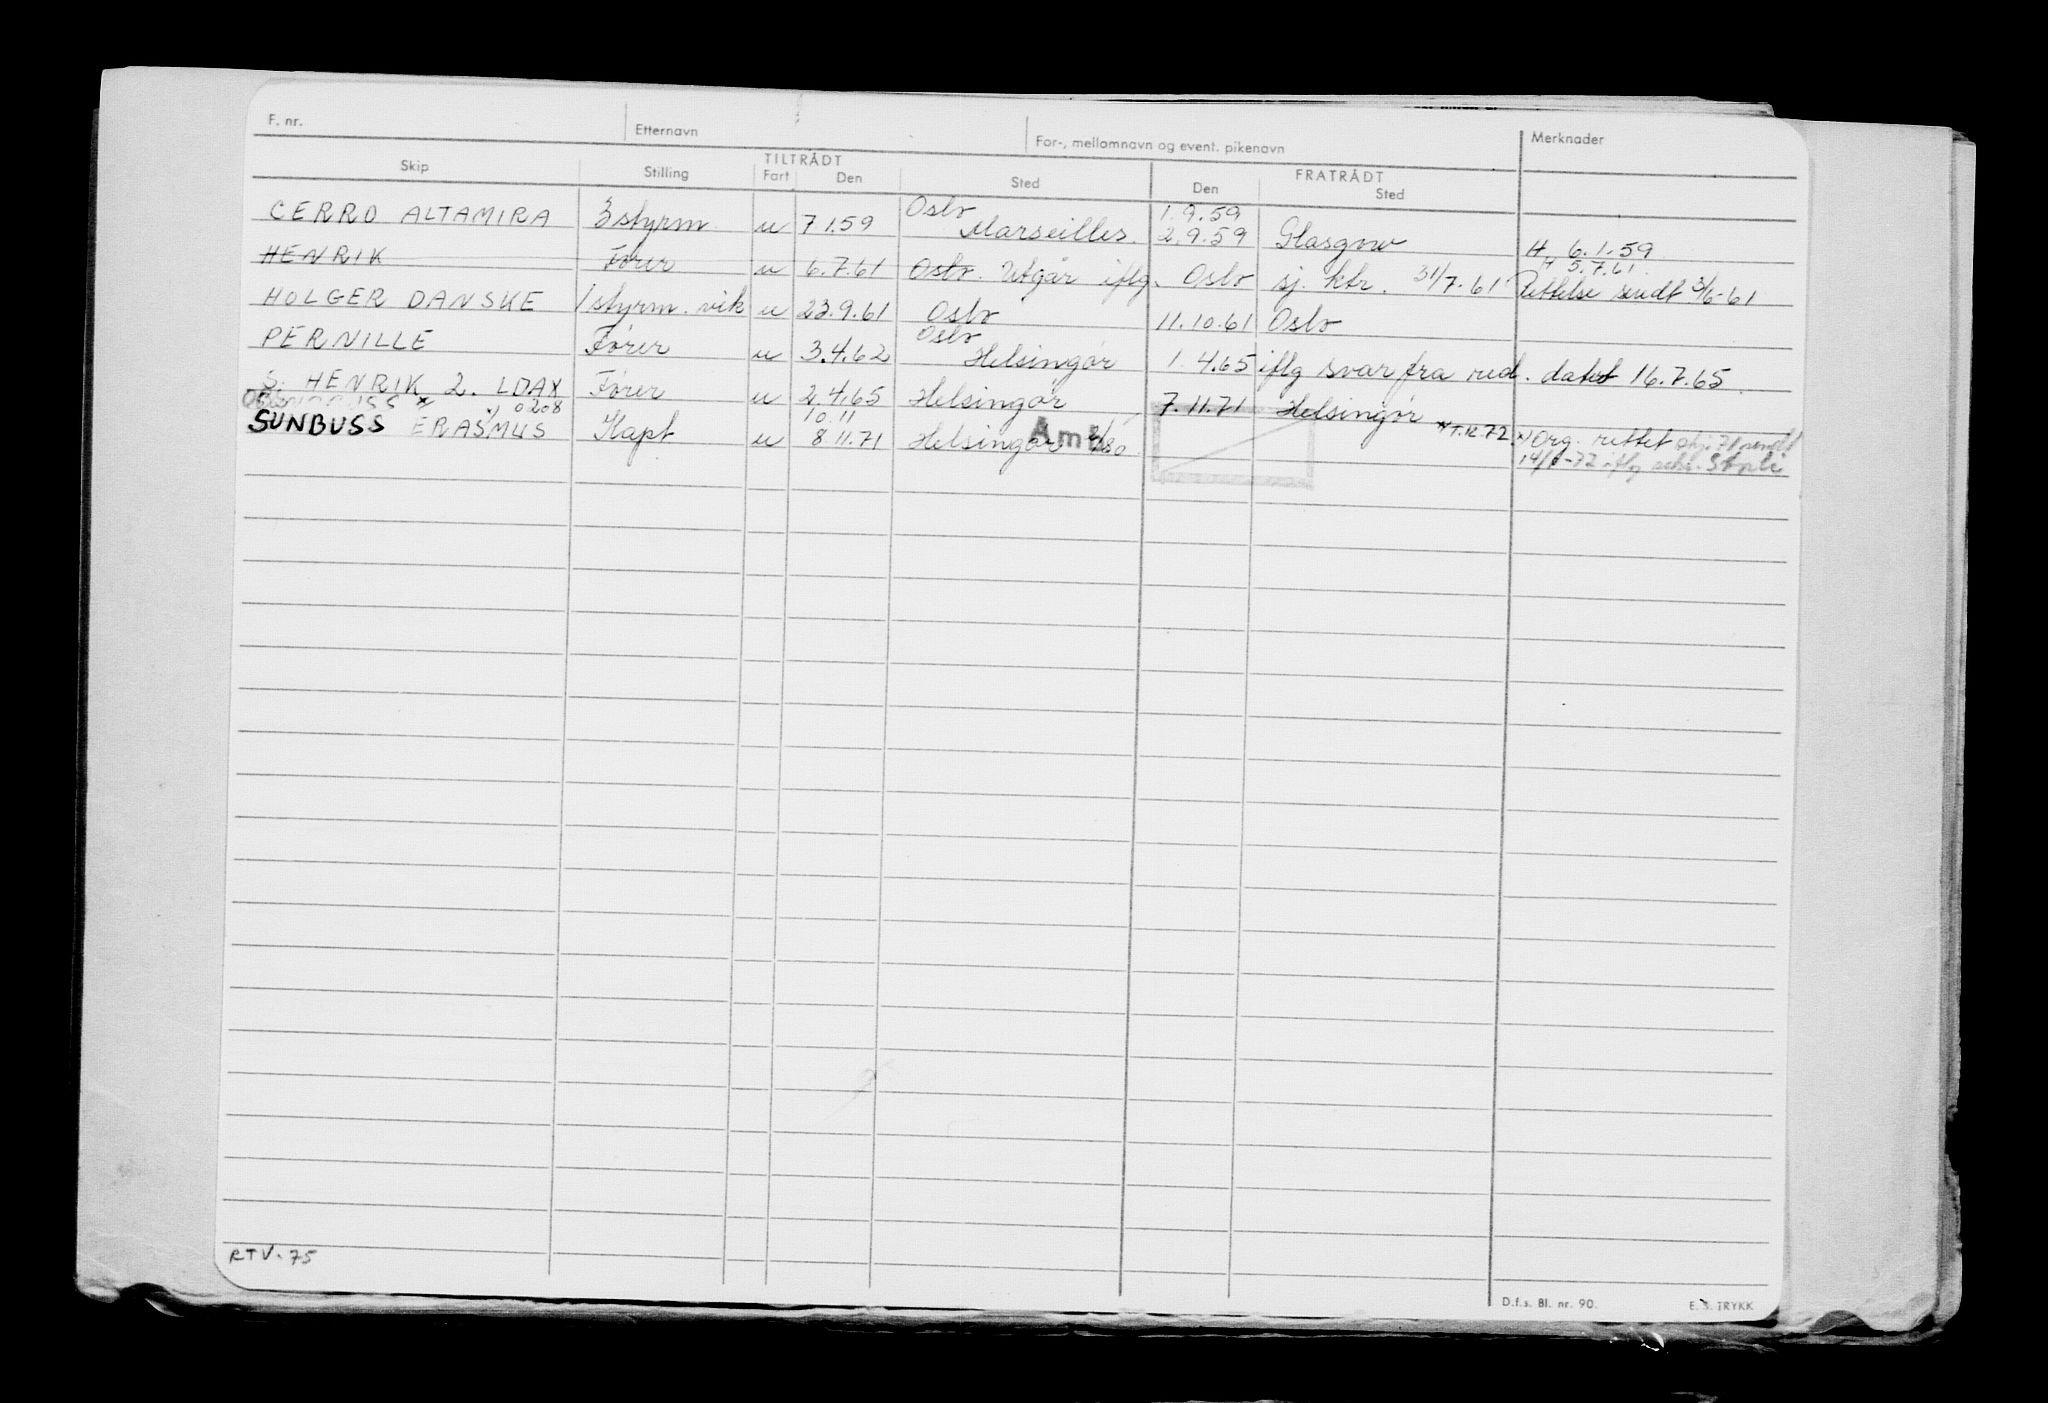 F. nr. Etternavn For-, mellomnavn og event. pikenavn Merknader
TILTRÅDT FRATRÅDT
Skip Stilling Fart Den Sted Den Sted
Oslo 1.9.59
CERRO ALTAMIRA 3 styrm. u 7.1.59 Marseilles. 2.9.59 Glasgow H 6.1.59
H 5.7.61.
HENRIK Fører u 6.7.61 Oslo. Utgår iflg. Oslo sj. ktr. 31/7.61 Rettelse sendt 3/6-61
HOLGER DANSKE 1 styrm. vik u 23.9.61 Oslo 11.10.61 Oslo
Oslo
PERNILLE Fører u 3.4.62 Helsingør 1.4.65 iflg svar fra red. datet 16.7.65
S. HENRIK 2. LDAX Fører u 2.4.65 Helsingør 7.11.71 Helsingør
x) 0208 10.11
SUNBUSS ERASMUS Kapt u 8.11.71 Helsingør Åm 80 T.12.72 x) Org. rettet
14/6-72 iflg
RTV-75
D.f.s. Bl. nr. 90. E. S. TRYKK